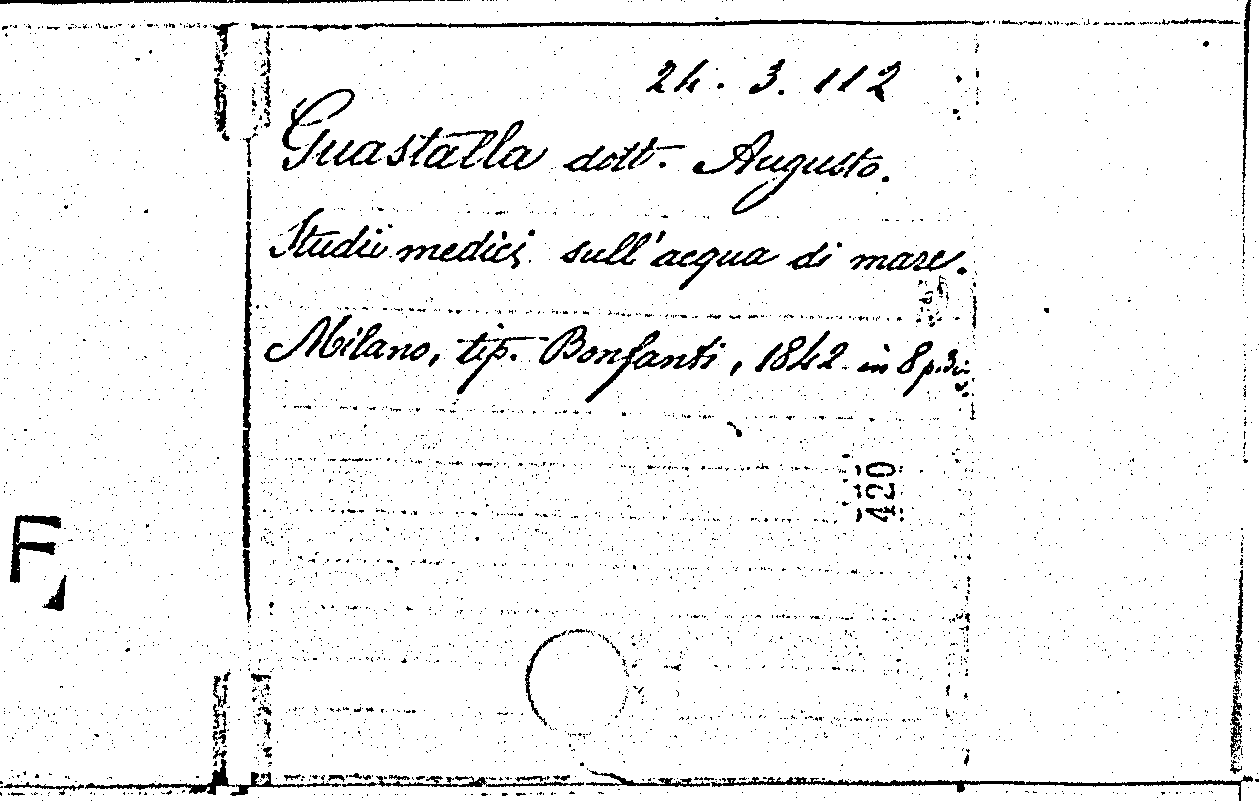 24. 3. 112
Guastalla dott. Augusto.
Studii medici sull'acqua di mare.
Milano, tip. Bonfanti, 1842 in 8 p.
420
F